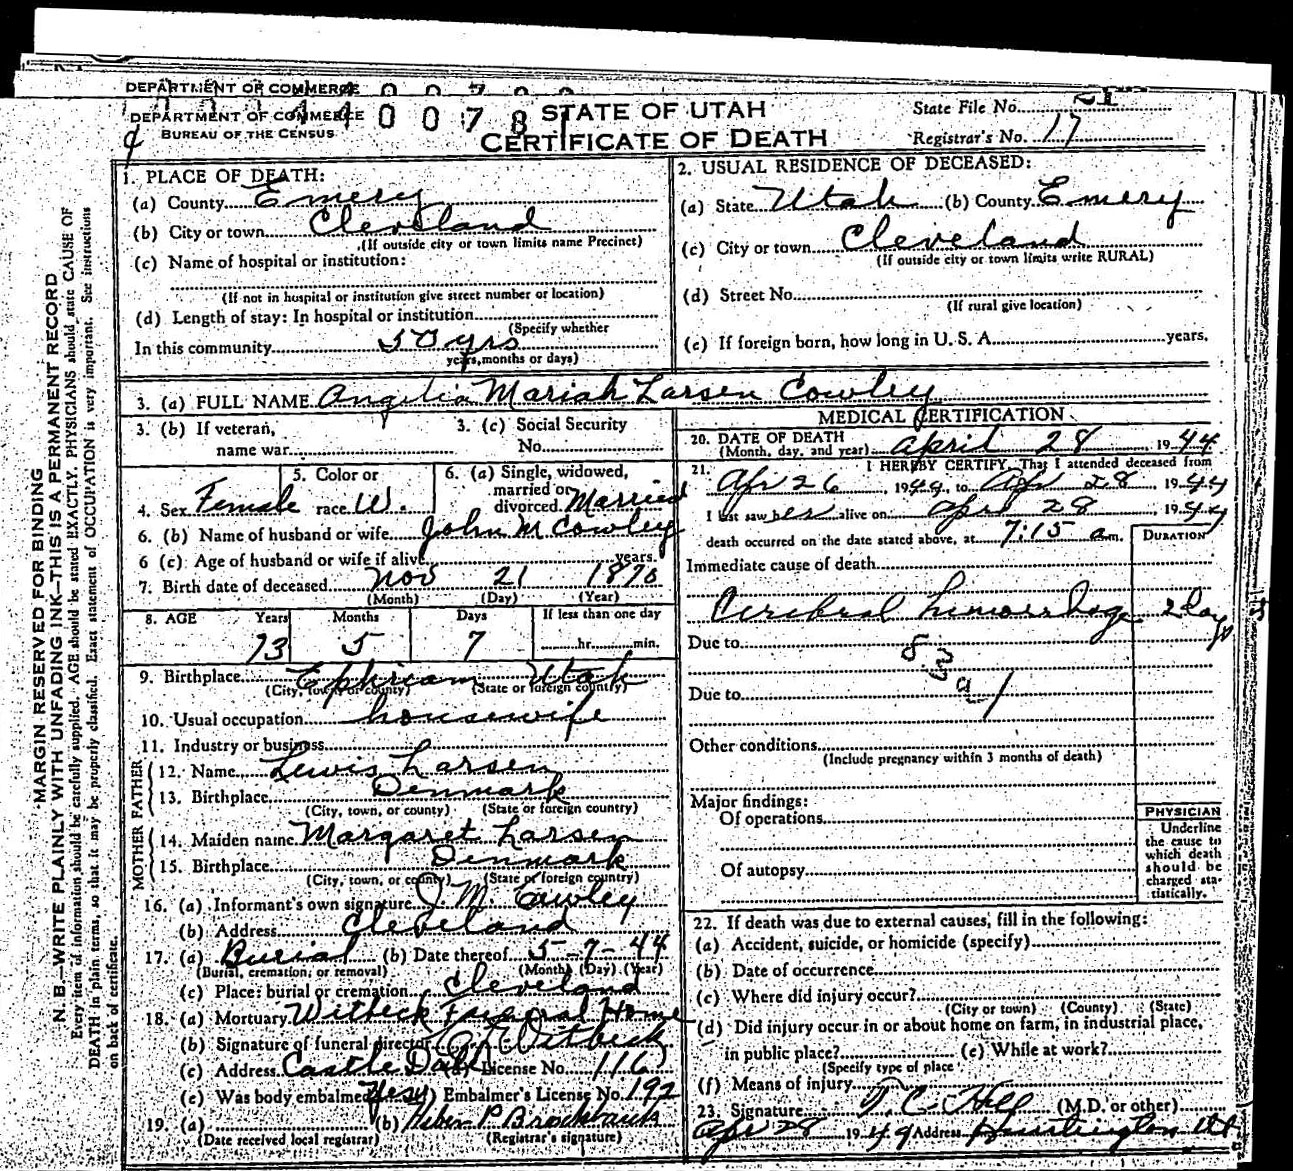 DEPARTMENT OF COMMERCE
DEPARTMENT OF COMMERCE
BUREAU OF THE CENSUS
STATE OF UTAH
CERTIFICATE OF DEATH
State File No.
Registrar's No. 17
1. PLACE OF DEATH:
(a) County Emery
(b) City or town Cleveland
(If outside city or town limits name Precinct)
(c) Name of hospital or institution:
(If not in hospital or institution give street number or location)
(d) Length of stay: In hospital or institution
(Specify whether
In this community 50 yrs
years, months or days)
2. USUAL RESIDENCE OF DECEASED:
(a) State Utah (b) County Emery
(c) City or town Cleveland
(If outside city or town limits write RURAL)
(d) Street No.
(If rural give location)
(e) If foreign born, how long in U. S. A. years.
3. (a) FULL NAME Angelia Mariah Larsen Cowley
3. (b) If veteran,
name war
3. (c) Social Security
No.
4. Sex Female
5. Color or
race W.
6. (a) Single, widowed,
married or
divorced Married
6. (b) Name of husband or wife John M Cowley
6 (c) Age of husband or wife if alive years.
7. Birth date of deceased Nov 21 1870
(Month) (Day) (Year)
8. AGE Years Months Days If less than one day
73 5 7 hr. min.
9. Birthplace Ephriam Utah
(City, town or county) (State or foreign country)
10. Usual occupation housewife
11. Industry or business
FATHER
12. Name Lewis Larsen
13. Birthplace Denmark
(City, town, or county) (State or foreign country)
MOTHER
14. Maiden name Margaret Larsen
15. Birthplace Denmark
(City, town, or county) (State or foreign country)
16. (a) Informant's own signature J M. Cowley
(b) Address Cleveland
17. (a) Burial (b) Date thereof 5-7-44
(Burial, cremation, or removal) (Month) (Day) (Year)
(c) Place: burial or cremation Cleveland
18. (a) Mortuary Witbeck Funeral Home
(b) Signature of funeral director Witbeck
(c) Address Castle Dale License No. 116
(e) Was body embalmed Yes Embalmer's License No. 192
19. (a) (b) Heber P. Brockbank
(Date received local registrar) (Registrar's signature)
MEDICAL CERTIFICATION
20. DATE OF DEATH
(Month, day, and year) April 28 1944
21. I HEREBY CERTIFY, That I attended deceased from
Apr 26, 1944, to Apr 28 1944
I last saw her alive on Apr 28, 1944
death occurred on the date stated above, at 7:15 a.m.
DURATION
Immediate cause of death
Cerebral hemorrhage 2 Days
Due to
83a1
Due to
Other conditions
(Include pregnancy within 3 months of death)
Major findings:
Of operations
Of autopsy
PHYSICIAN
Underline
the cause to
which death
should be
charged sta-
tistically.
22. If death was due to external causes, fill in the following:
(a) Accident, suicide, or homicide (specify)
(b) Date of occurrence
(c) Where did injury occur?
(City or town) (County) (State)
(d) Did injury occur in or about home on farm, in industrial place,
in public place? (e) While at work?
(Specify type of place
(f) Means of injury
23. Signature T. C. Hill (M.D. or other)
Apr 28 1944 Address Huntington Ut
MARGIN RESERVED FOR BINDING
N. B.—WRITE PLAINLY WITH UNFADING INK—THIS IS A PERMANENT RECORD
Every item of information should be carefully supplied. AGE should be stated EXACTLY. PHYSICIANS should state CAUSE OF
DEATH in plain terms, so that it may be properly classified. Exact statement of OCCUPATION is very important. See instructions
on back of certificate.